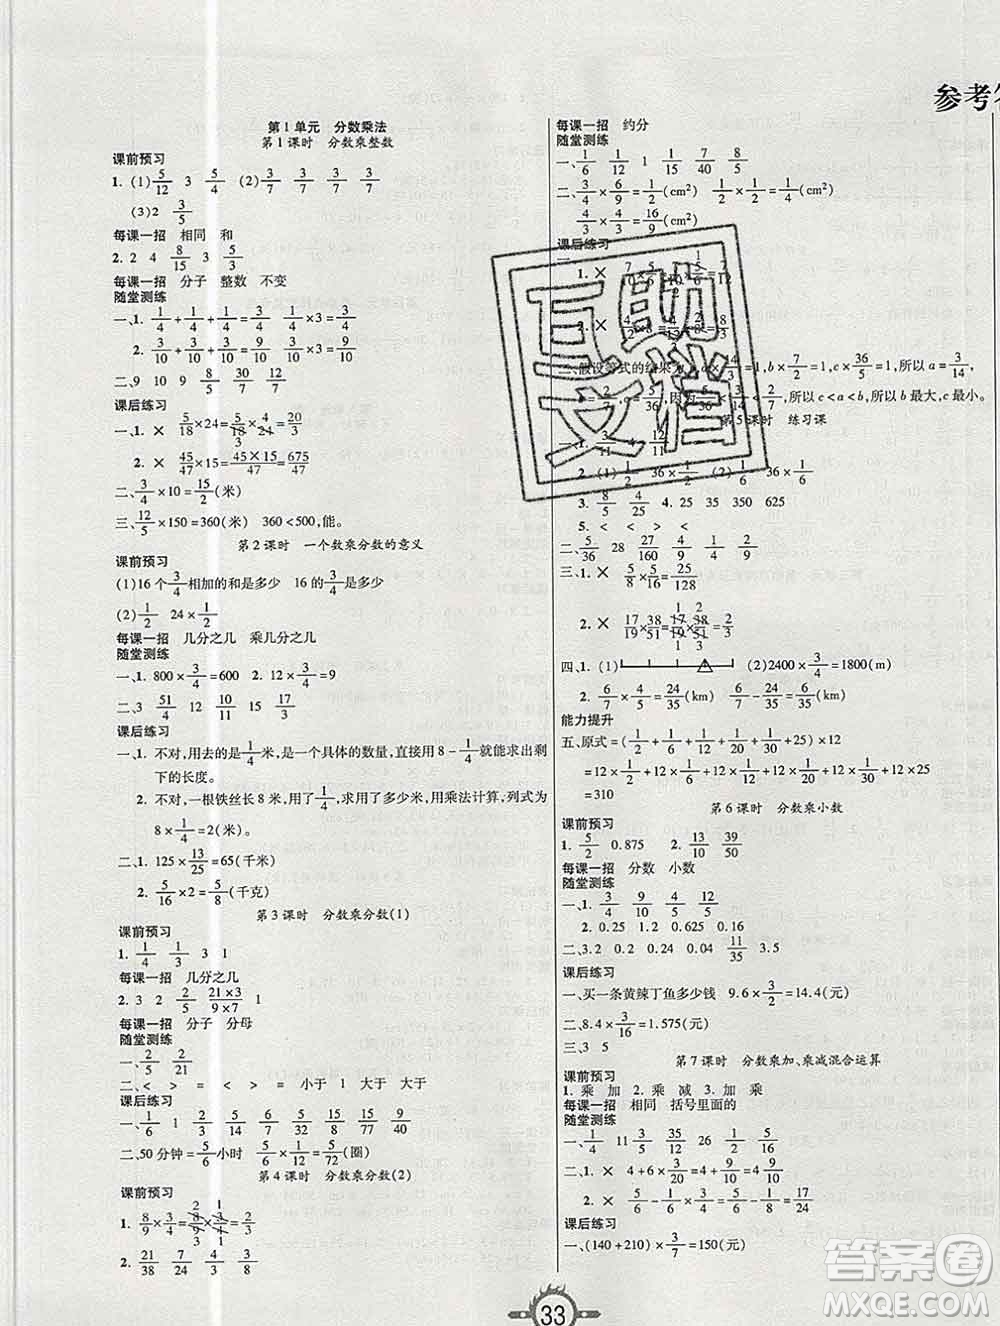 参考
第1单元 分数乘法
第1课时 分数乘整数
课前预习
1. (1)5/12 3 5/4 (2)3/7 3/7 3/7 3/7
(3)2 3/5
每课一招 相同 和
2. 2 4 8/15 3 5/3
每课一招 分子 整数 不变
随堂测练
一、1. 1/4+1/4+1/4=1/4×3=3/4
2. 3/10+3/10+3/10=3/10×3=9/10
二、9 10 9 8/9 30/7 12/7
课后练习
一、1. × 5/18×24=5/18×24=20/3
2. × 45/47×15=45×15/47=675/47
二、3/4×10=15/2(米)
三、12/5×150=360(米) 360<500,能。
第2课时 一个数乘分数的意义
课前预习
(1)16个3/4相加的和是多少 16的3/4是多少
(2)1/2 24×1/2
每课一招 几分之几 乘几分之几
随堂测练
一、1. 800×3/4=600 2. 12×3/4=9
二、3 51/4 12 10/11 15 17/4
课后练习
一、1. 不对,用去的是1/4米,是一个具体的数量,直接用8-1/4就能求出剩
下的长度。
2. 不对,一根铁丝长8米,用了1/4,求用了多少米,用乘法计算,列式为
8×1/4=2(米)。
二、1. 125×13/25=65(千米)
2. 5/16×2=5/8(千克)
第3课时 分数乘分数(1)
课前预习
1. 1/4 1/3 3 1
每课一招 几分之几
2. 3 2 2/5 21×3/9×7 1
每课一招 分子 分母
随堂测练
一、2/5 2/21
二、< > = < 小于 1 大于 大于
课后练习
一、1/6 1 2/5 3/14 5/8 5/32 8/15 8/77
二、50分钟=5/6小时 5/6×1/12=5/72(圈)
第4课时 分数乘分数(2)
课前预习
1. 8/9×3/4=8/9×3/4=2/3
2. 21/38 7/24 5/21
每课一招 约分
随堂测练
一、1/6 1/12 1 7/40 8/5
二、3/4×6/9=1/2(cm²) 1/2×1/2=1/4(cm²)
4/3×4/3=16/9(cm²)
课后练习
第5课时 练习课
2. (1)1/2 36×1/2 (2)1/6
3. 8/5 4/25 4. 25 35 350 625
5. < < > <
二、5/36 28 27/160 4/9 1/4 1/9
三、1. × 5/8×5/16=25/128
2. × 17/19×38/51=17/19×38/51=2/3
四、1. (1) (2)2400×3/4=1800(m)
2. 6/7×4/5=24/35(km) 6/7-6/35=24/35(km)
能力提升
五、原式=(1/2+1/6+1/12+1/20+1/30+25)×12
=12×1/2+12×1/6+12×1/12+12×1/20+12×1/30+12×25
=310
第6课时 分数乘小数
课前预习
1. 5/2 0.875 2. 13/10 39/50
每课一招 分数 小数
随堂测练
一、1. 1/5 3/4 9/20 1/8
2. 0.25 1.2 0.625 0.16
二、3.2 0.2 0.04 0.4 11/35 3.5
课后练习
一、买一条黄辣丁鱼多少钱 9.6×3/2=14.4(元)
二、8.4×3/16=1.575(元)
三、3 5
第7课时 分数乘加、乘减混合运算
课前预习
1. 乘 加 2. 乘 减 3. 加 乘
每课一招 相同 括号里面的
随堂测练
一、1/4 11 3/5 35/12 26 1/2 5/16
二、1. × 4+6×3/20=4+9/10=4 9/10
课后练习
一、(140+210)×3/7=150(元)
33
互助文档
答案圈
MXQE.COM